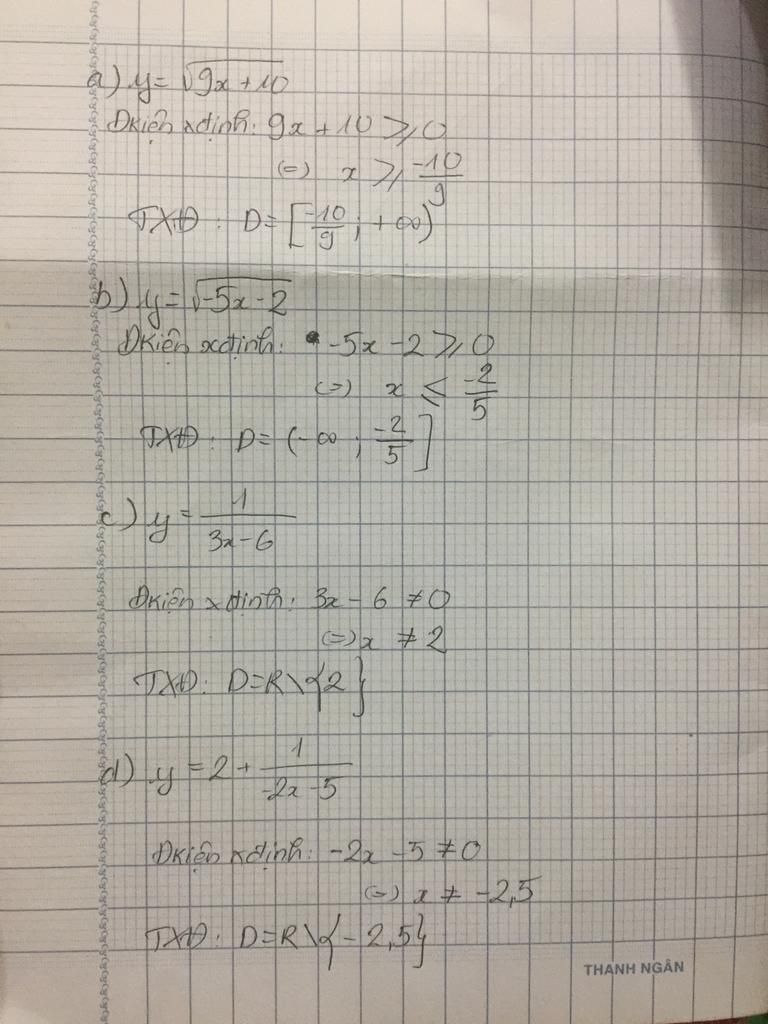 a) y = √(9x + 10)
Đkiện xđịnh: 9x + 10 ⩾ 0
(=) x ⩾ -10/9
TXĐ : D = [-10/9 ; +∞)
b) y = √(-5x - 2)
Đkiện xđịnh: -5x - 2 ⩾ 0
(=) x ≤ -2/5
TXĐ : D = (-∞ ; -2/5]
c) y = 1/(3x - 6)
Đkiện xđịnh: 3x - 6 ≠ 0
(=) x ≠ 2
TXĐ: D = R \ {2}
d) y = 2 + 1/(-2x - 5)
Đkiện xđịnh: -2x - 5 ≠ 0
(=) x ≠ -2,5
TXĐ: D = R \ {-2,5}
THANH NGÂN